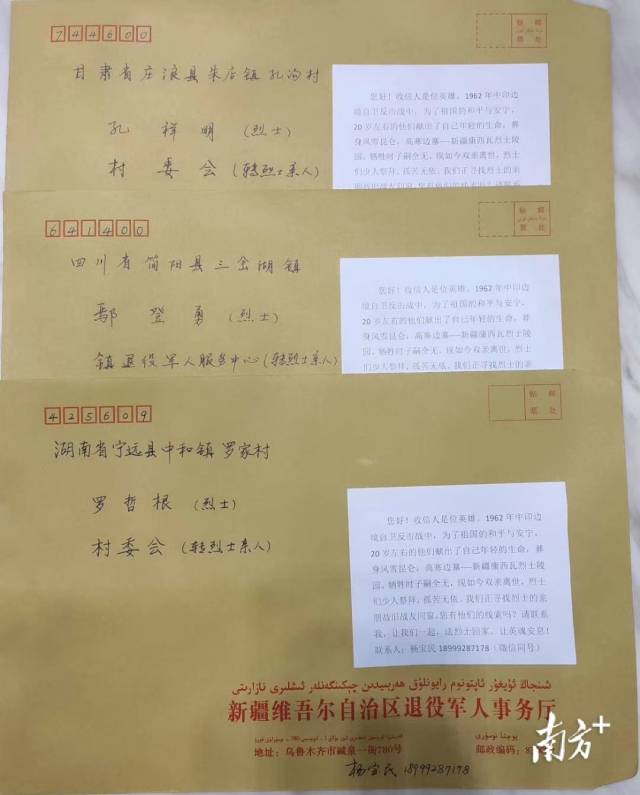 744600
贴 邮
票 处
甘肃省庄浪县朱店镇孔沟村
孔祥明(烈士)
村委会(转烈士亲人)
您好！收信人是位英雄。1962年中印边
境自卫反击战中，为了祖国的和平与安宁，
20岁左右的他们献出了自己年轻的生命，葬
身风雪昆仑，高寒边塞---新疆康西瓦烈士陵
园。牺牲时子嗣全无，现如今双亲离世，烈士
们少人祭拜，孤苦无依。我们正寻找烈士的亲
641400
贴 邮
票 处
四川省简阳县三岔湖镇
鄢登勇(烈士)
镇退役军人服务中心(转烈士亲人)
您好！收信人是位英雄。1962年中印边
境自卫反击战中，为了祖国的和平与安宁，
20岁左右的他们献出了自己年轻的生命，葬
身风雪昆仑，高寒边塞---新疆康西瓦烈士陵
园。牺牲时子嗣全无，现如今双亲离世，烈士
们少人祭拜，孤苦无依。我们正寻找烈士的亲
425609
贴 邮
票 处
湖南省宁远县中和镇罗家村
罗哲根(烈士)
村委会(转烈士亲人)
您好！收信人是位英雄。1962年中印边
境自卫反击战中，为了祖国的和平与安宁，
20岁左右的他们献出了自己年轻的生命，葬
身风雪昆仑，高寒边塞---新疆康西瓦烈士陵
园。牺牲时子嗣全无，现如今双亲离世，烈士
们少人祭拜，孤苦无依。我们正寻找烈士的亲
朋故旧战友同窗，您有他们的线索吗？请联系
我，让我们一起，送烈士回家，让英魂安息！
联系人：杨宝民 18999287178（微信同号）
شىنجاڭ ئۇيغۇر ئاپتونوم رايونلۇق ھەربىيدىن چېكىنگەنلەر ئىشلىرى نازارىتى
新疆维吾尔自治区退役军人事务厅
地址：乌鲁木齐市碱泉一街780号
邮政编码：8
杨宝民 18999287178
南方+